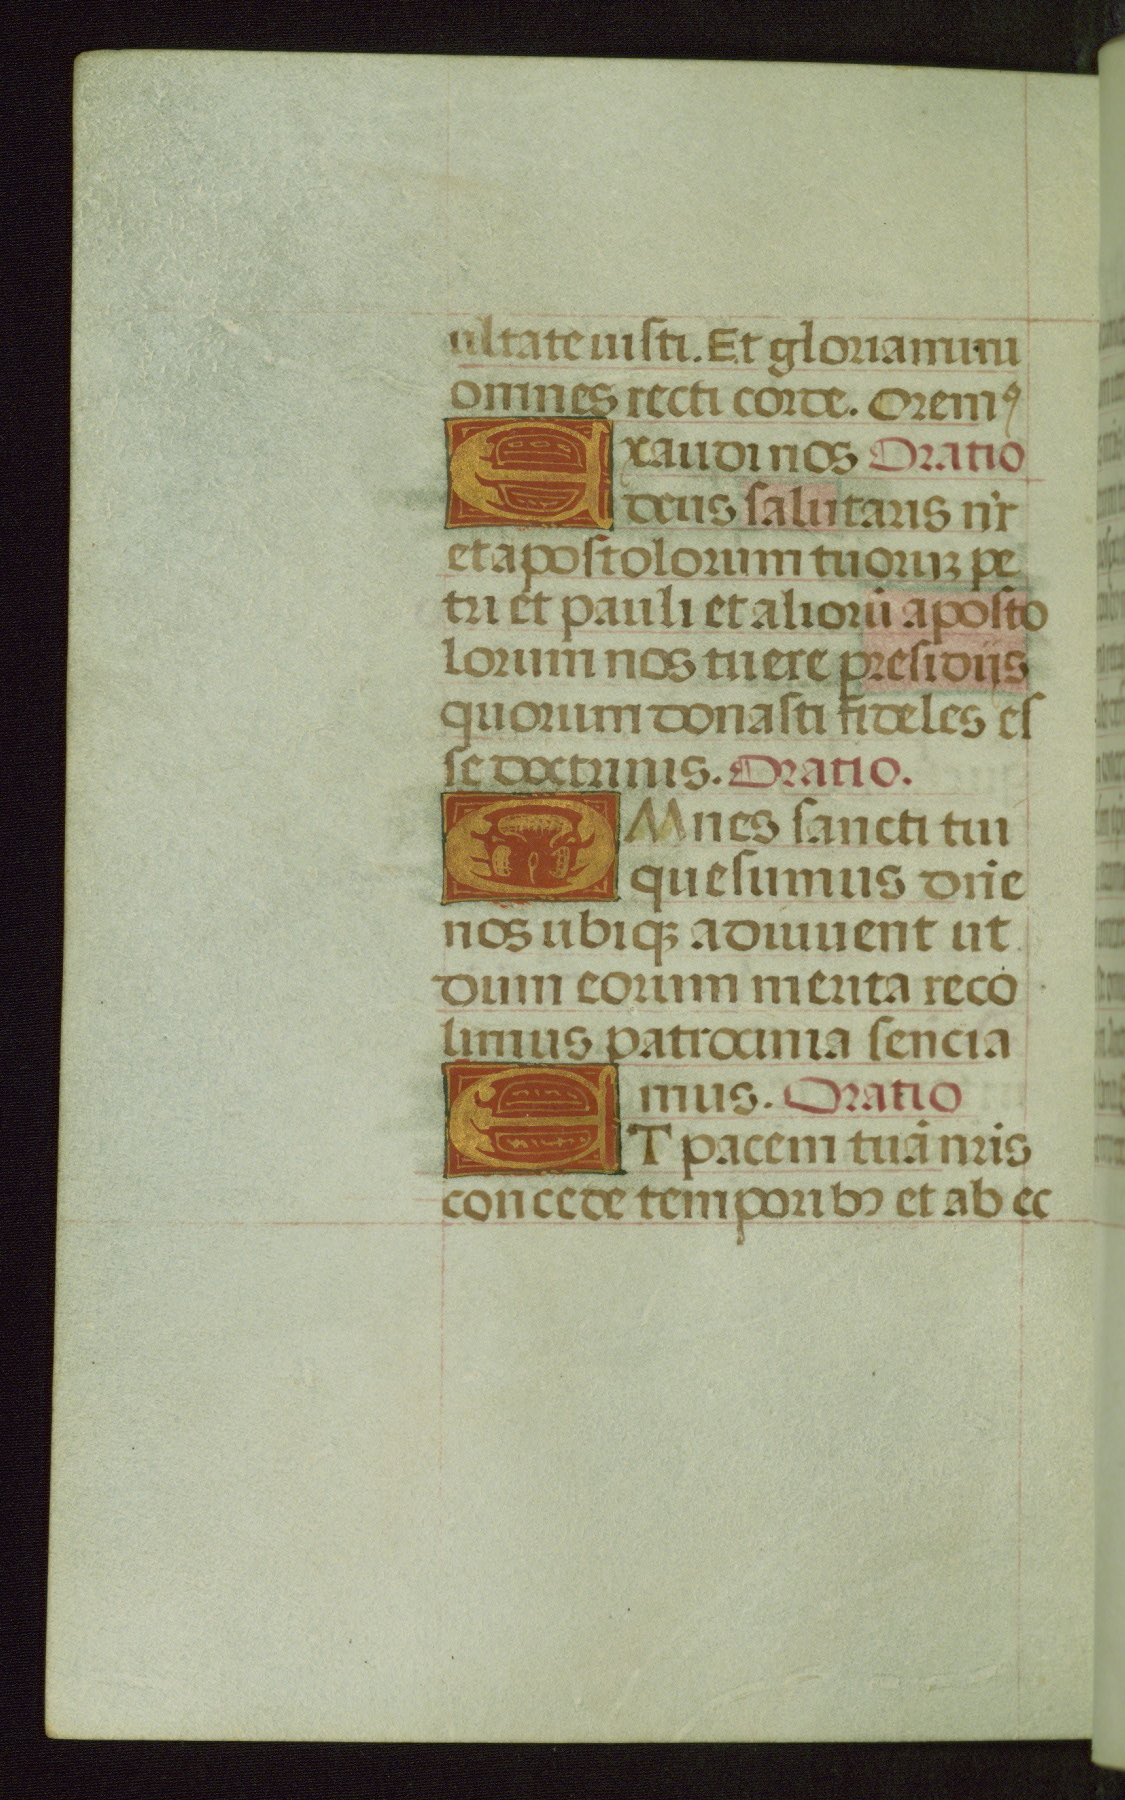 ultate iusti. Et gloriamini
omnes recti corde. Oremꝰ
Exaudi nos Oratio
deus salutaris nr̄
et apostolorum tuoruꝫ pe
tri et pauli et aliorū aposto
lorum nos tuere presidiis
quorum donasti fideles es
se doctrinis. Oratio.
OMnes sancti tui
quesumus dn̄e
nos ubiqꝫ adiuuent ut
dum eorum merita reco
limus patrocinia sencia
mus. Oratio
ET pacem tuā nr̄is
concede temporibꝰ et ab ec